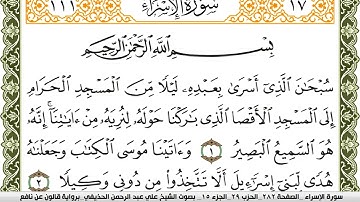 ١٧ سُورَةُ الإِسْرَاءِ ١١١
بِسْمِ اللَّهِ الرَّحْمَٰنِ الرَّحِيمِ
سُبْحَٰنَ الَّذِي أَسْرَىٰ بِعَبْدِهِ لَيْلًا مِّنَ الْمَسْجِدِ الْحَرَامِ
إِلَى الْمَسْجِدِ الْأَقْصَا الَّذِي بَٰرَكْنَا حَوْلَهُ لِنُرِيَهُ مِنْ ءَايَٰتِنَا إِنَّهُ
هُوَ السَّمِيعُ الْبَصِيرُ ١ وَءَاتَيْنَا مُوسَى الْكِتَٰبَ وَجَعَلْنَٰهُ
هُدًى لِّبَنِي إِسْرَٰٓءِيلَ أَلَّا تَتَّخِذُوا مِن دُونِي وَكِيلًا ٢
سورة الإسراء _ الصفحة ٢٨٢ _ الحزب ٢٩ _ الجزء ١٥ _ بصوت الشيخ علي عبد الرحمن الحذيفي _ برواية قالون عن نافع